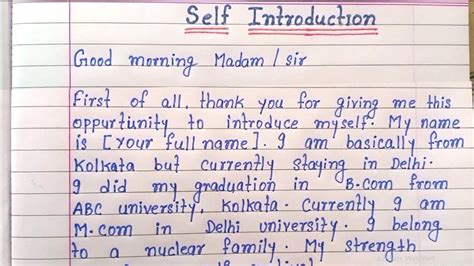 Self Introduction
Good morning Madam / sir
First of all, thank you for giving me this
oppurtunity to introduce myself. My name
is [Your full name]. I am basically from
Kolkata but currently staying in Delhi.
I did my graduation in B.com from
ABC university, Kolkata. Currently I am
M.com in Delhi university. I belong
to a nuclear family. My strength